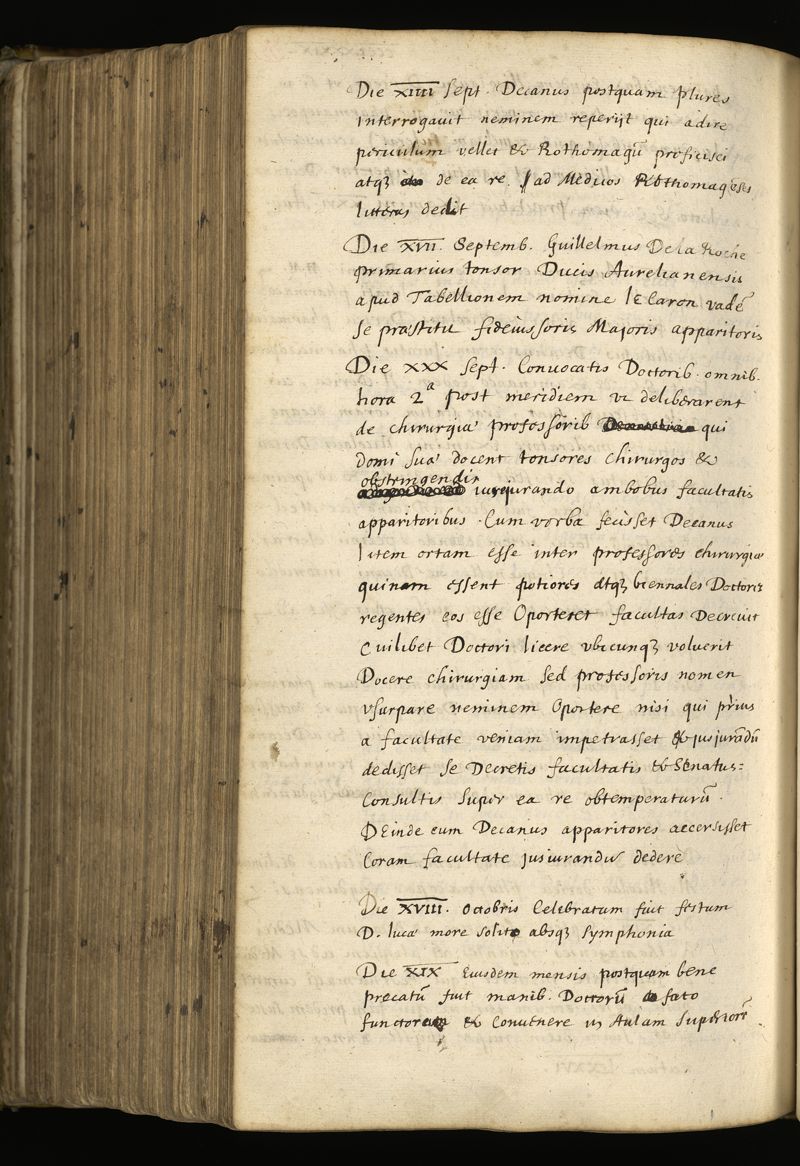 Die XIIII Sept. Decanus postquam plures
Interrogavit neminem reperijt qui adire
periculum vellet & Rothomagũ proficisci
atqz de ea re ad Medicos Rothomagẽses
litteras dedit
Die XVII. Septemb. Guillelmus De la Roche
primarius tonsor Ducis Aurelianensis
apud Tabellionem nomine le Caron vadẽ
se præstitit fideiussoris Majoris apparitoris
Die XXX Sept. Convocatis Doctorib. omnib.
hora 2ᵃ post meridiem vt deliberarent
de chirurgiæ professorib qui
domi suæ docent tonsores chirurgos &
obstringendis
iurejurando ambobus facultatis
apparitoribus. Cum verba fecisset Decanus
litem ortam esse inter professores chirurgiæ
quinam essent potiores atqz biennales Doctores
regentes eos esse Oporteret facultas Decrevit
Cuilibet Doctori licere vbicunqz voluerit
Docere chirurgiam sed professoris nomen
vsurpare neminem Oportere nisi qui priùs
a facultate veniam impetrasset & jusjurãdũ
dedisset se Decretis facultatis & Senatus=
Consultis super ea re obtemperaturũ.
DEinde cum Decanus apparitores accersisset
Coram facultate jusiurandũ dederẽ
Die XVIII. Octobris Celebratum fuit festum
D. lucæ more solito absqz symphonia
Die XIX Eiusdem mensis postquam bene
precatũ fuit manib. Doctorũ fato
functorum & Convenere in Aulam Superiorẽ